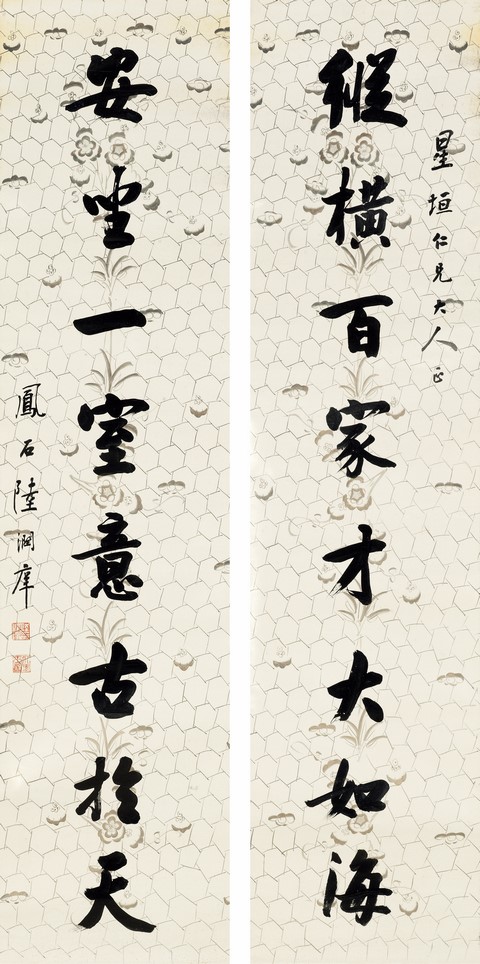 星垣仁兄大人正
縱橫百家才大如海
安坐一室意古於天
鳳石陸潤庠